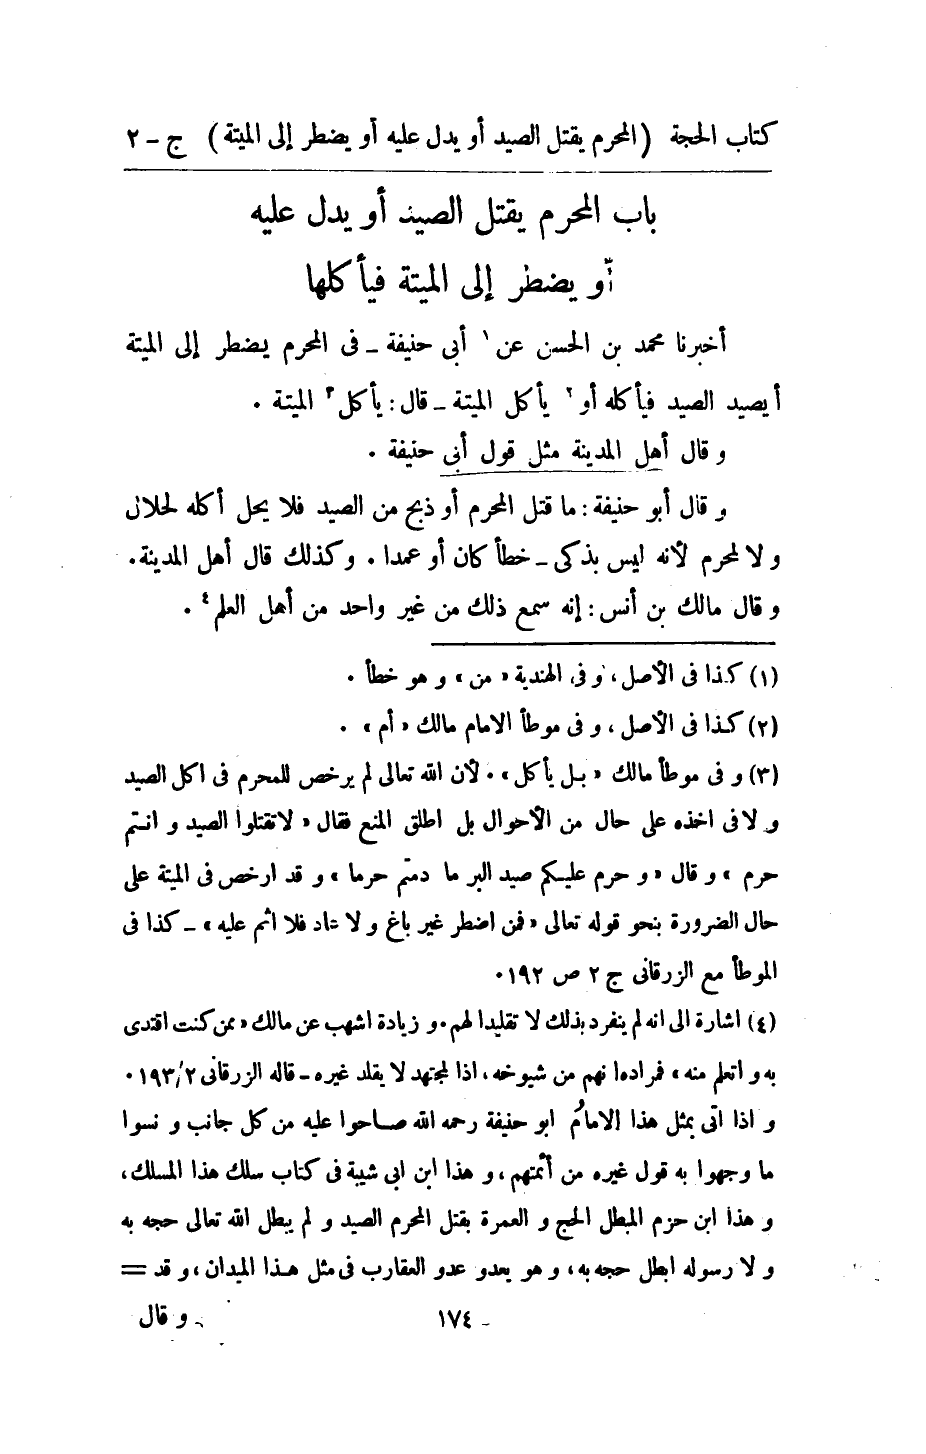 كتاب الحجة (المحرم يقتل الصيد أو يدل عليه أو يضطر إلى الميتة) ج ــ ٢
باب المحرم يقتل الصيد أو يدل عليه
أو يضطر إلى الميتة فيأكلها
أخبرنا محمد بن الحسن عن ١ أبى حنيفة ــ فى المحرم يضطر إلى الميتة
أيصيد الصيد فيأكله أو ٢ يأكل الميتة ــ قال: يأكل ٣ الميتة .
و قال أهل المدينة مثل قول أبى حنيفة .
و قال أبو حنيفة: ما قتل المحرم أو ذبح من الصيد فلا يحل أكله لحلال
و لا لمحرم لأنه ليس بذكى ــ خطأ كان أو عمدا . وكذلك قال أهل المدينة.
و قال مالك بن أنس: إنه سمع ذلك من غير واحد من أهل العلم ٤ .
(١) كذا فى الأصل، و فى الهندية « من » و هو خطأ .
(٢) كذا فى الأصل ، و فى موطأ الامام مالك « أم » .
(٣) و فى موطأ مالك « بل يأكل » . لأن الله تعالى لم يرخص للمحرم فى اكل الصيد
و لا فى اخذه على حال من الأحوال بل اطلق المنع فقال « لا تقتلوا الصيد و انتم
حرم » و قال « و حرم عليكم صيد البر ما دمتم حرما » و قد ارخص فى الميتة على
حال الضرورة بنحو قوله تعالى « فمن اضطر غير باغ و لا عاد فلا اثم عليه » ــ كذا فى
الموطأ مع الزرقانى ج ٢ ص ١٩٢.
(٤) اشارة الى انه لم ينفرد بذلك لا تقليدا لهم . و زيادة اشهب عن مالك « ممن كنت اقتدى
به و اتعلم منه » فمراده انهم من شيوخه، اذ المجتهد لا يقلد غيره ــ قاله الزرقانى ٢/ ١٩٣.
و اذا اتى بمثل هذا الامام ابو حنيفة رحمه الله صاحوا عليه من كل جانب و نسوا
ما وجهوا به قول غيره من أئمتهم، و هذا ابن ابى شيبة فى كتاب سلك هذا المسلك،
و هذا ابن حزم المبطل الحج و العمرة بقتل المحرم الصيد و لم يبطل الله تعالى حجه به
و لا رسوله ابطل حجه به، و هو يعدو عدو العقارب فى مثل هذا الميدان، و قد =
ــ ١٧٤
و قال